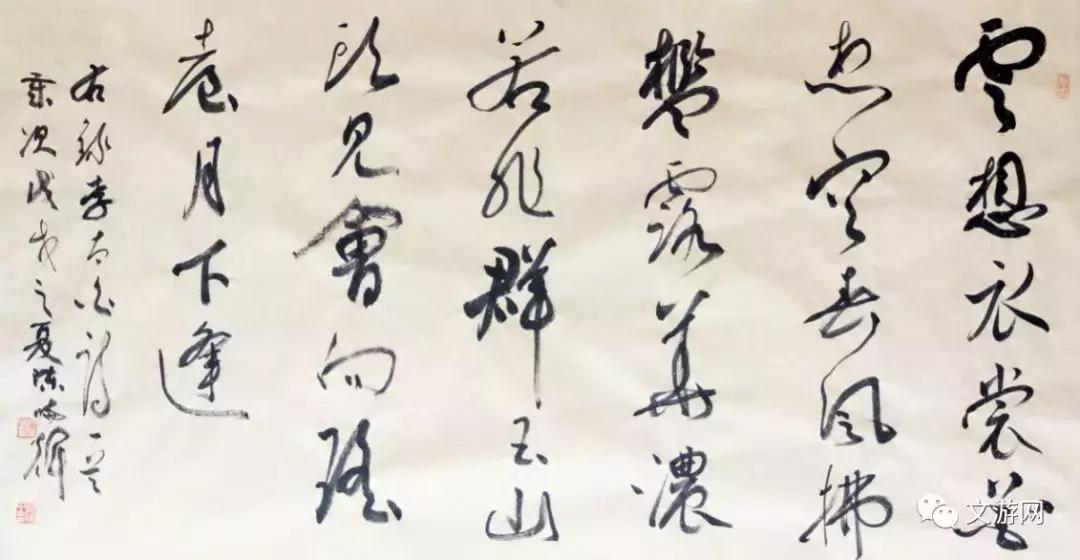 雲想衣裳花
想容春風拂
檻露華濃
若非群玉山
頭見會向瑤
臺月下逢
右錄李太白詩一首
歲次戊戌之夏陳
文游网